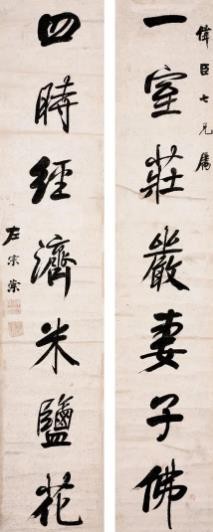 偉臣七兄屬
一室莊嚴妻子佛
四時經濟米鹽花
左宗棠